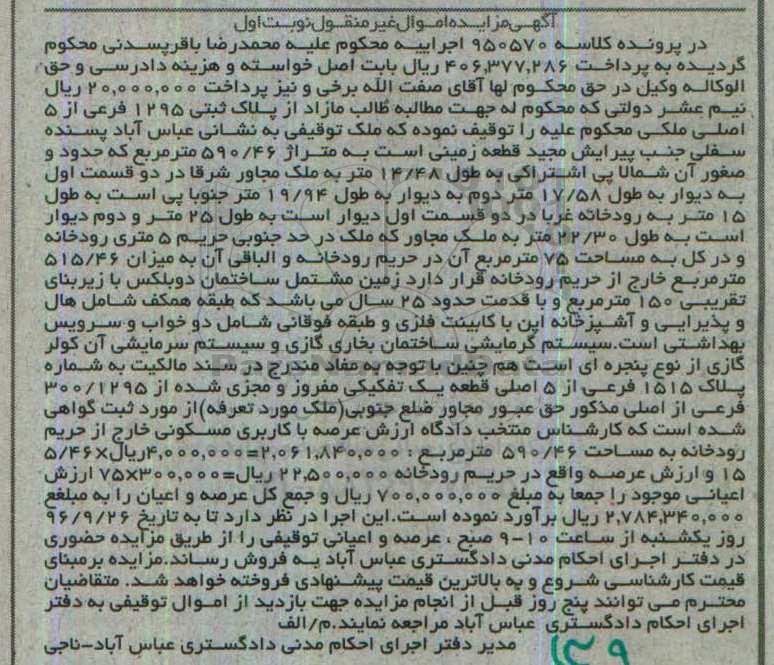 آگهی مزایده اموال غیر منقول نوبت اول
در پرونده کلاسه ۹۵۰۵۷۰ اجراییه محکوم علیه محمدرضا باقرپسندی محکوم
گردیده به پرداخت ۴۰۶,۳۷۷,۲۸۶ ریال بابت اصل خواسته و هزینه دادرسی و حق
الوکاله وکیل در حق محکوم لها آقای صفت الله برخی و نیز پرداخت ۲۰,۰۰۰,۰۰۰ ریال
نیم عشر دولتی که محکوم له جهت مطالبه طالب مازاد از پلاک ثبتی ۱۲۹۵ فرعی از ۵
اصلی ملکی محکوم علیه را توقیف نموده که ملک توقیفی به نشانی عباس آباد پسنده
سفلی جنب پیرایش مجید قطعه زمینی است به متراژ ۵۹۰/۴۶ مترمربع که حدود و
صغور آن شمالا پی اشتراکی به طول ۱۴/۴۸ متر به ملک مجاور شرقا در دو قسمت اول
به دیوار به طول ۱۷/۵۸ متر دوم به دیوار به طول ۱۹/۹۴ متر جنوبا پی است به طول
۱۵ متر به رودخانه غربا در دو قسمت اول دیوار است به طول ۲۵ متر و دوم دیوار
است به طول ۲۲/۳۰ متر به ملک مجاور که ملک در حد جنوبی حریم ۵ متری رودخانه
و در کل به مساحت ۷۵ مترمربع آن در حریم رودخانه و الباقی آن به میزان ۵۱۵/۴۶
مترمربع خارج از حریم رودخانه قرار دارد زمین مشتمل ساختمان دوبلکس با زیربنای
تقریبی ۱۵۰ مترمربع و با قدمت حدود ۲۵ سال می باشد که طبقه همکف شامل هال
و پذیرایی و آشپزخانه اپن با کابینت فلزی و طبقه فوقانی شامل دو خواب و سرویس
بهداشتی است.سیستم گرمایشی ساختمان بخاری گازی و سیستم سرمایشی آن کولر
گازی از نوع پنجره ای است هم چنین با توجه به مفاد مندرج در سند مالکیت به شماره
پلاک ۱۵۱۵ فرعی از ۵ اصلی قطعه یک تفکیکی مفروز و مجزی شده از ۳۰۰/۱۲۹۵
فرعی از اصلی مذکور حق عبور مجاور ضلع جنوبی(ملک مورد تعرفه)از مورد ثبت گواهی
شده است که کارشناس منتخب دادگاه ارزش عرصه با کاربری مسکونی خارج از حریم
رودخانه به مساحت ۵۹۰/۴۶ مترمربع : ۲,۰۶۱,۸۴۰,۰۰۰=۴,۰۰۰,۰۰۰ریال×۵/۴۶
۱۵ و ارزش عرصه واقع در حریم رودخانه ۲۲,۵۰۰,۰۰۰ ریال=۷۵×۳۰۰,۰۰۰ ارزش
اعیانی موجود را جمعا به مبلغ ۷۰۰,۰۰۰,۰۰۰ ریال و جمع کل عرصه و اعیان را به مبلغغ
۲,۷۸۴,۳۴۰,۰۰۰ ریال برآورد نموده است.این اجرا در نظر دارد تا به تاریخ ۹۶/۹/۲۶
روز یکشنبه از ساعت ۱۰-۹ صبح ، عرصه و اعیانی توقیفی را از طریق مزایده حضوری
در دفتر اجرای احکام مدنی دادگستری عباس آباد به فروش رساند.مزایده برمبنای
قیمت کارشناسی شروع و به بالاترین قیمت پیشنهادی فروخته خواهد شد. متقاضیان
محترم می توانند پنج روز قبل از انجام مزایده جهت بازدید از اموال توقیفی به دفتر
اجرای احکام دادگستری عباس آباد مراجعه نمایند.م/الف
مدیر دفتر اجرای احکام مدنی دادگستری عباس آباد-ناجی